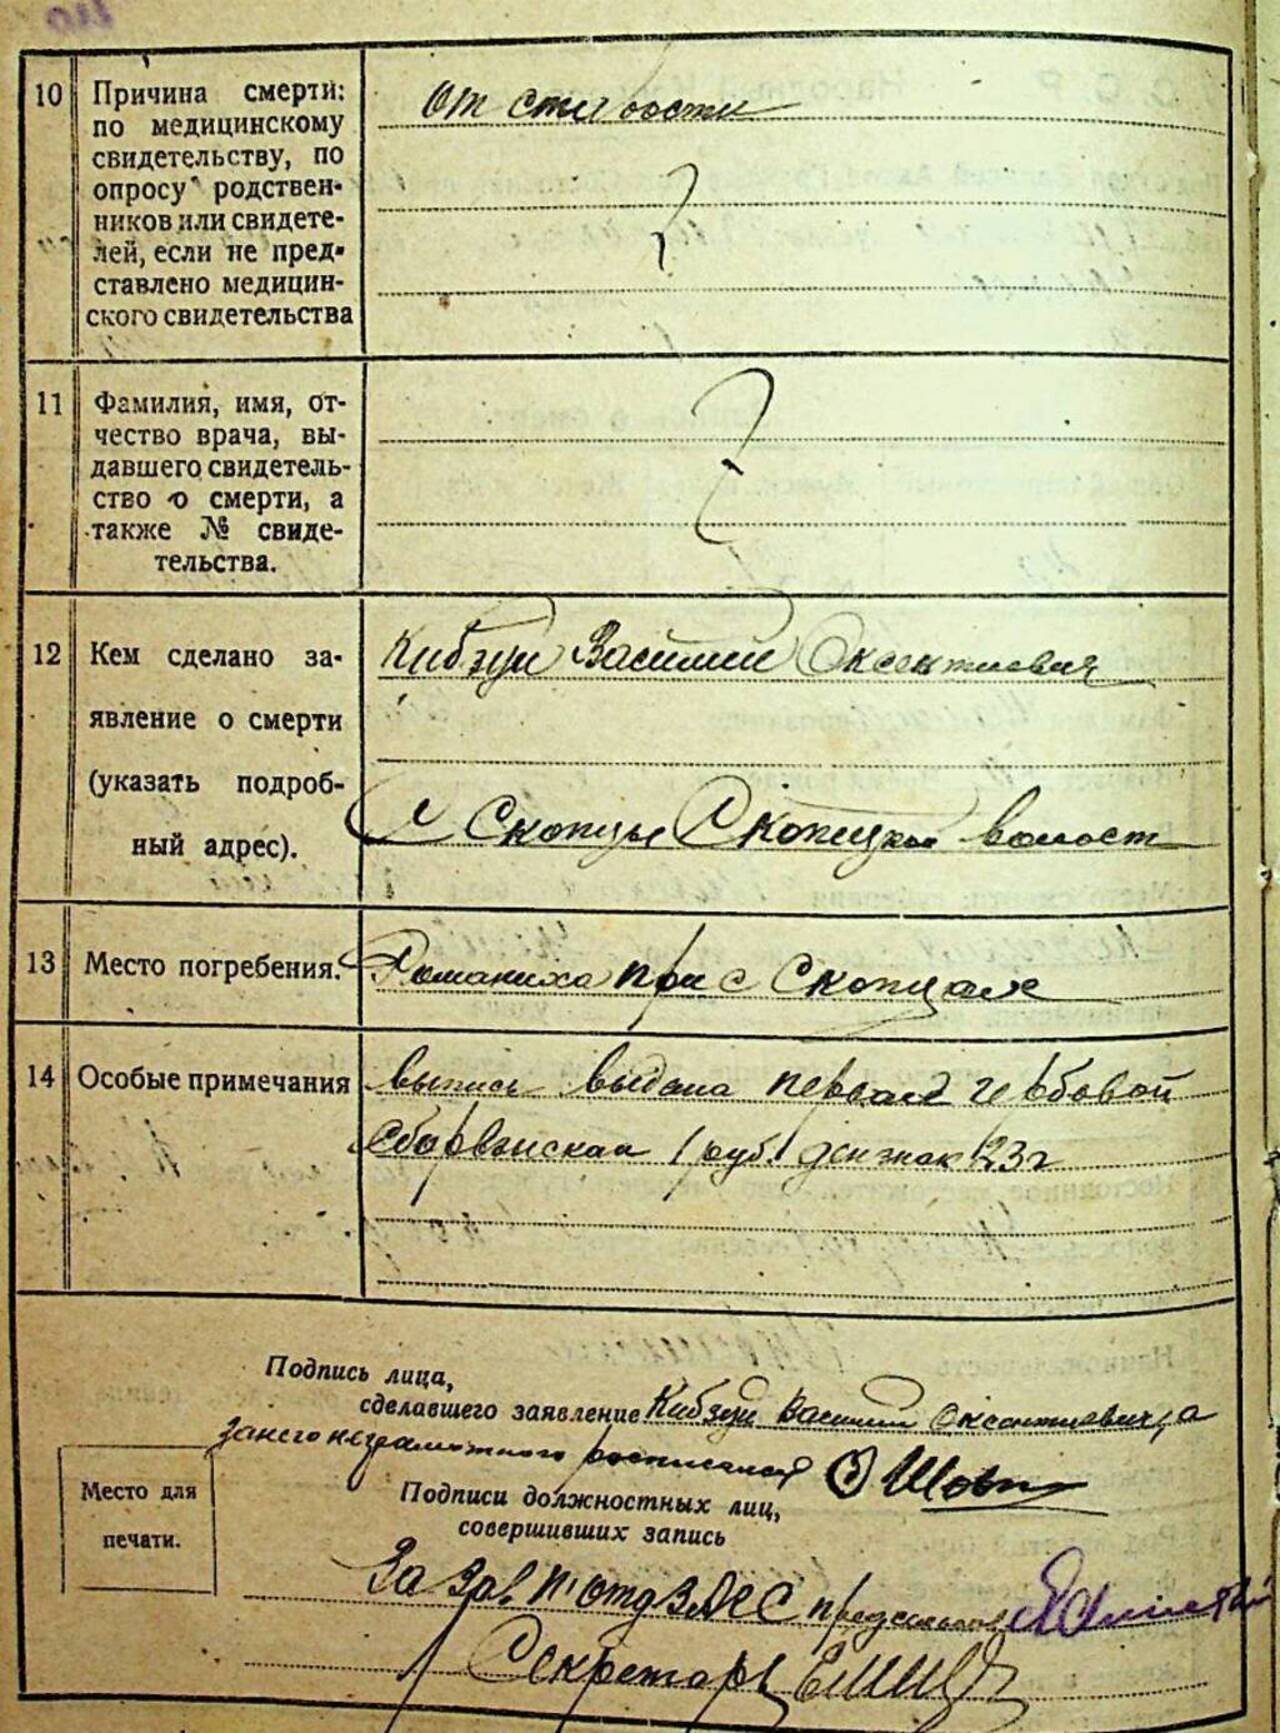 10 Причина смерти:
по медицинскому
свидетельству, по
опросу родствен-
ников или свидете-
лей, если не пред-
ставлено медицин-
ского свидетельства
От старости
11 Фамилия, имя, от-
чество врача, вы-
давшего свидетель-
ство о смерти, а
также № свиде-
тельства.
12 Кем сделано за-
явление о смерти
(указать подроб-
ный адрес).
Кибзун Василий Оксентиевич
с Скопцы Скопецкой волост
13 Место погребения.
Романиха при с Скопцах
14 Особые примечания
выпись выдана гербовой
1 руб. дензнак 23г
Подпись лица,
сделавшего заявление Кибзун Василий Оксентиевич, а
за него неграмотного росписался
Подписи должностных лиц,
совершивших запись
Место для
печати.
За Зав. п'отд ЗАГС
Секретарь